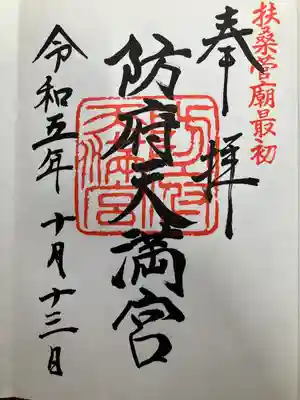 扶桑菅廟最初
奉拝
防府天満宮
令和五年 十月十三日
防府天満宮